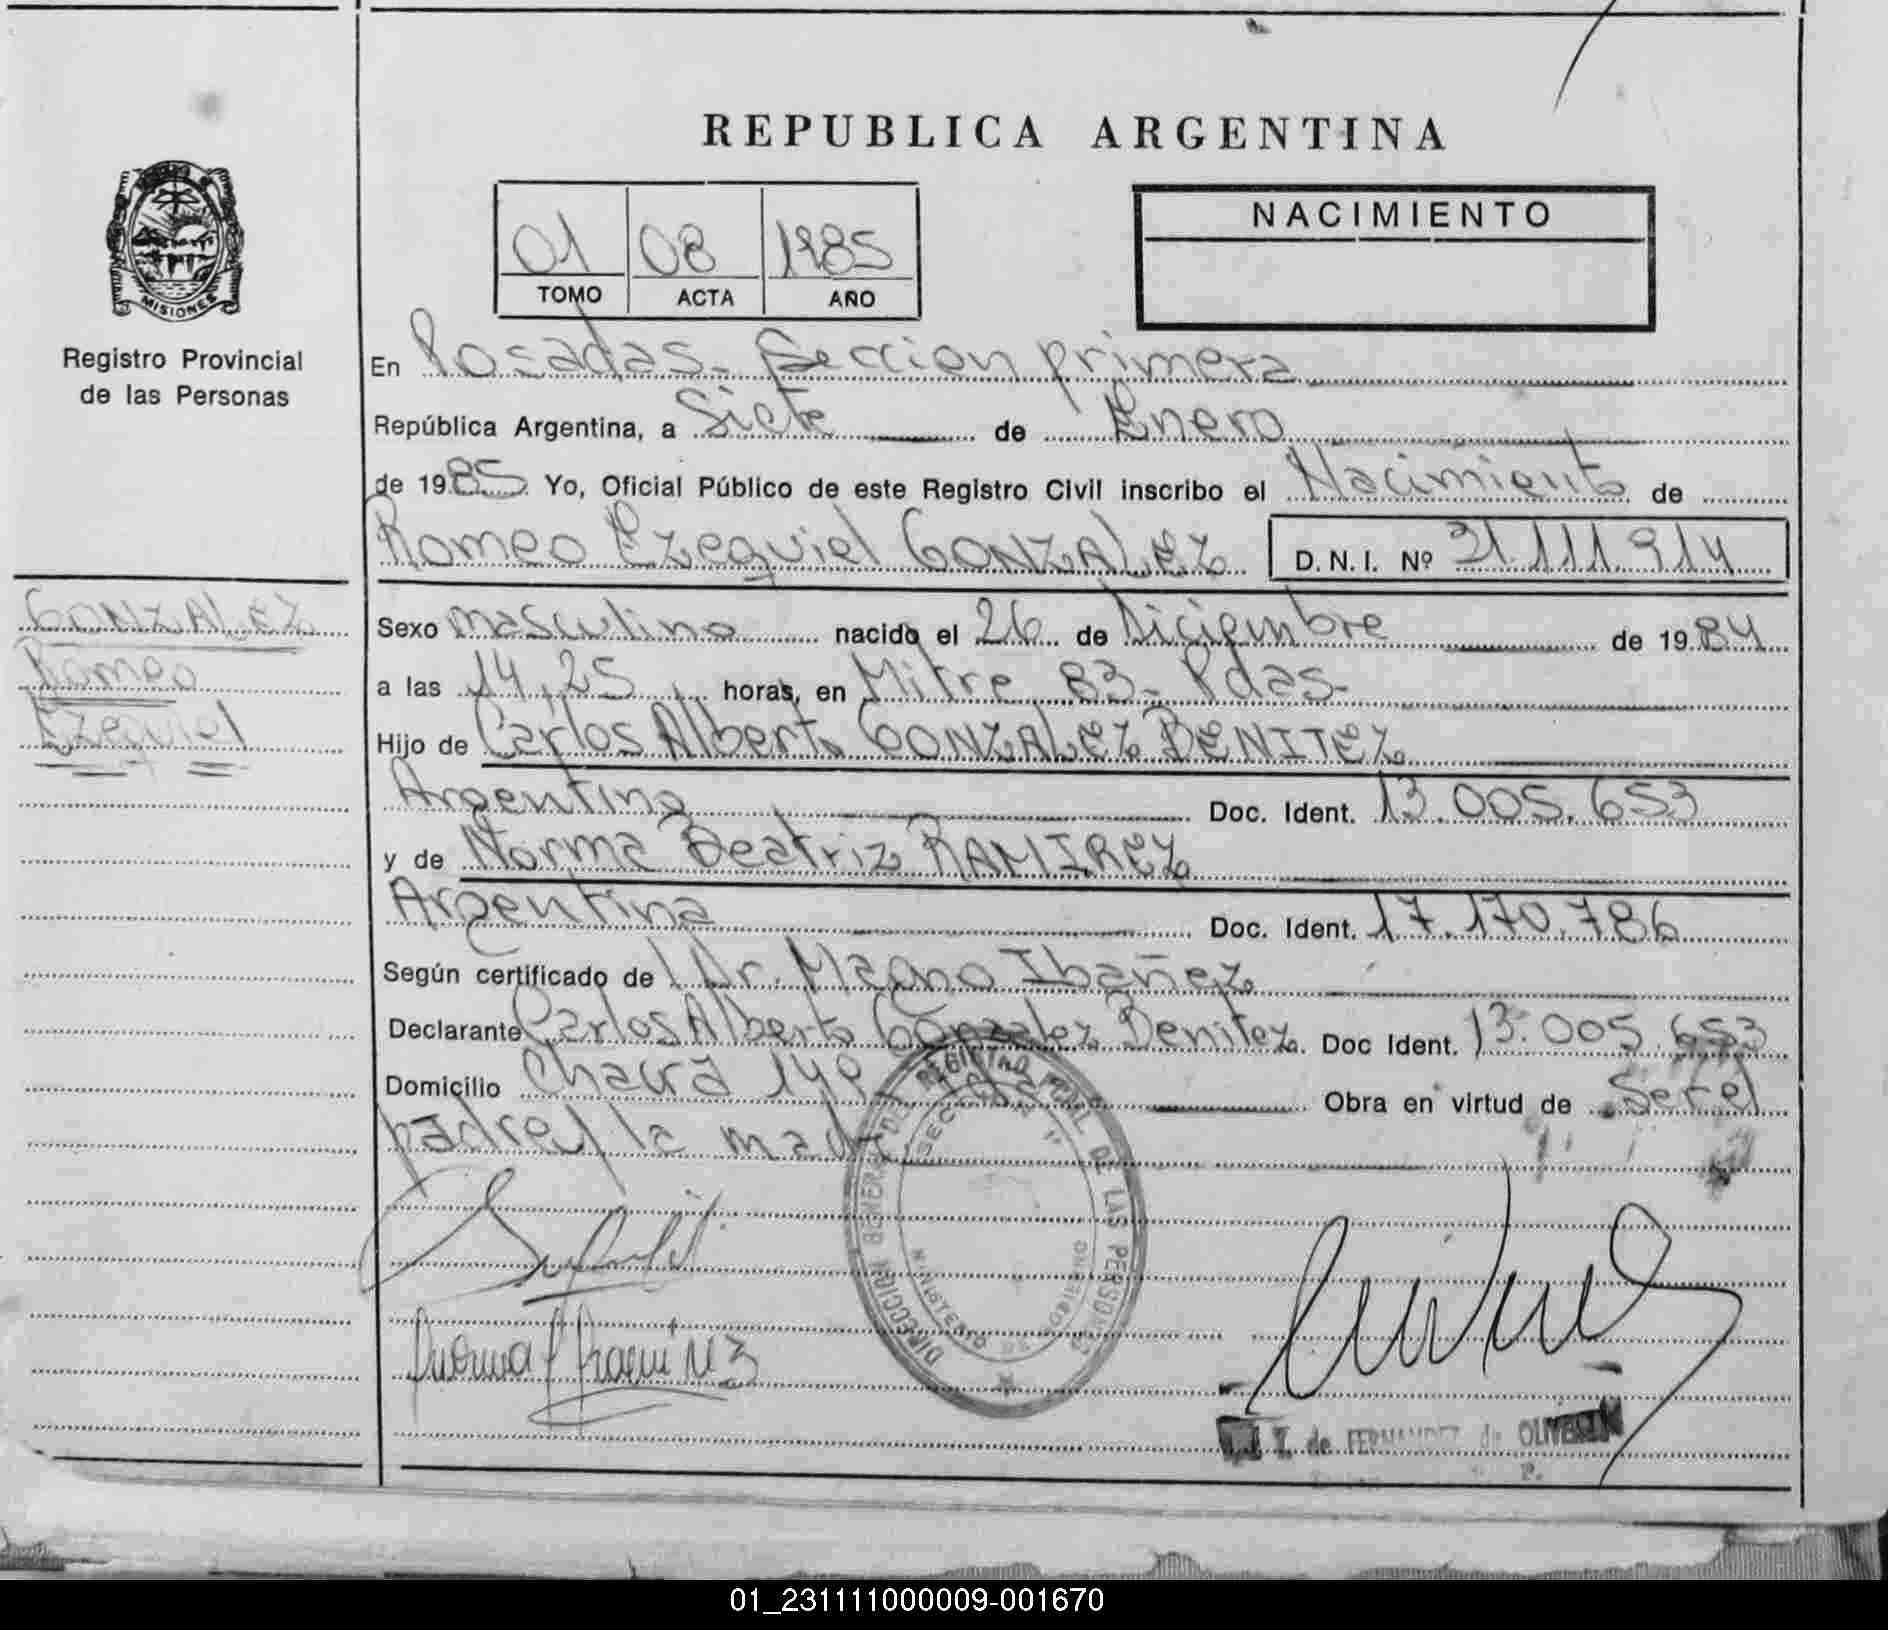 REPUBLICA ARGENTINA
MISIONES
Registro Provincial
de las Personas
01 08 1985
TOMO ACTA AÑO
NACIMIENTO
En Posadas - Seccion primera
República Argentina, a Siete de Enero
de 1985 Yo, Oficial Público de este Registro Civil inscribo el Nacimiento de
Romeo Ezequiel GONZALEZ D.N.I. Nº 31.111.914
GONZALEZ
Romeo
Ezequiel
Sexo masculino nacido el 26 de Diciembre de 1984
a las 14,25 horas, en Mitre 83 - Pdas -
Hijo de Carlos Alberto GONZALEZ BENITEZ
Argentino Doc. Ident. 13.005.653
y de Norma Beatriz RAMIREZ
Argentina Doc. Ident. 17.170.786
Según certificado de l Dr. Magno Ibañez
Declarante Carlos Alberto Gonzalez Benitez. Doc Ident. 13.005.653
Domicilio Chacra 149 Obra en virtud de Ser el
padre y la madre
DIRECCION GENERAL DEL REGISTRO PCIAL. DE LAS PERSONAS
SECCION 1ª
MINISTERIO DE GOBIERNO
Norma Ramirez
de FERNANDEZ de OLIVEIRA
01_231111000009-001670